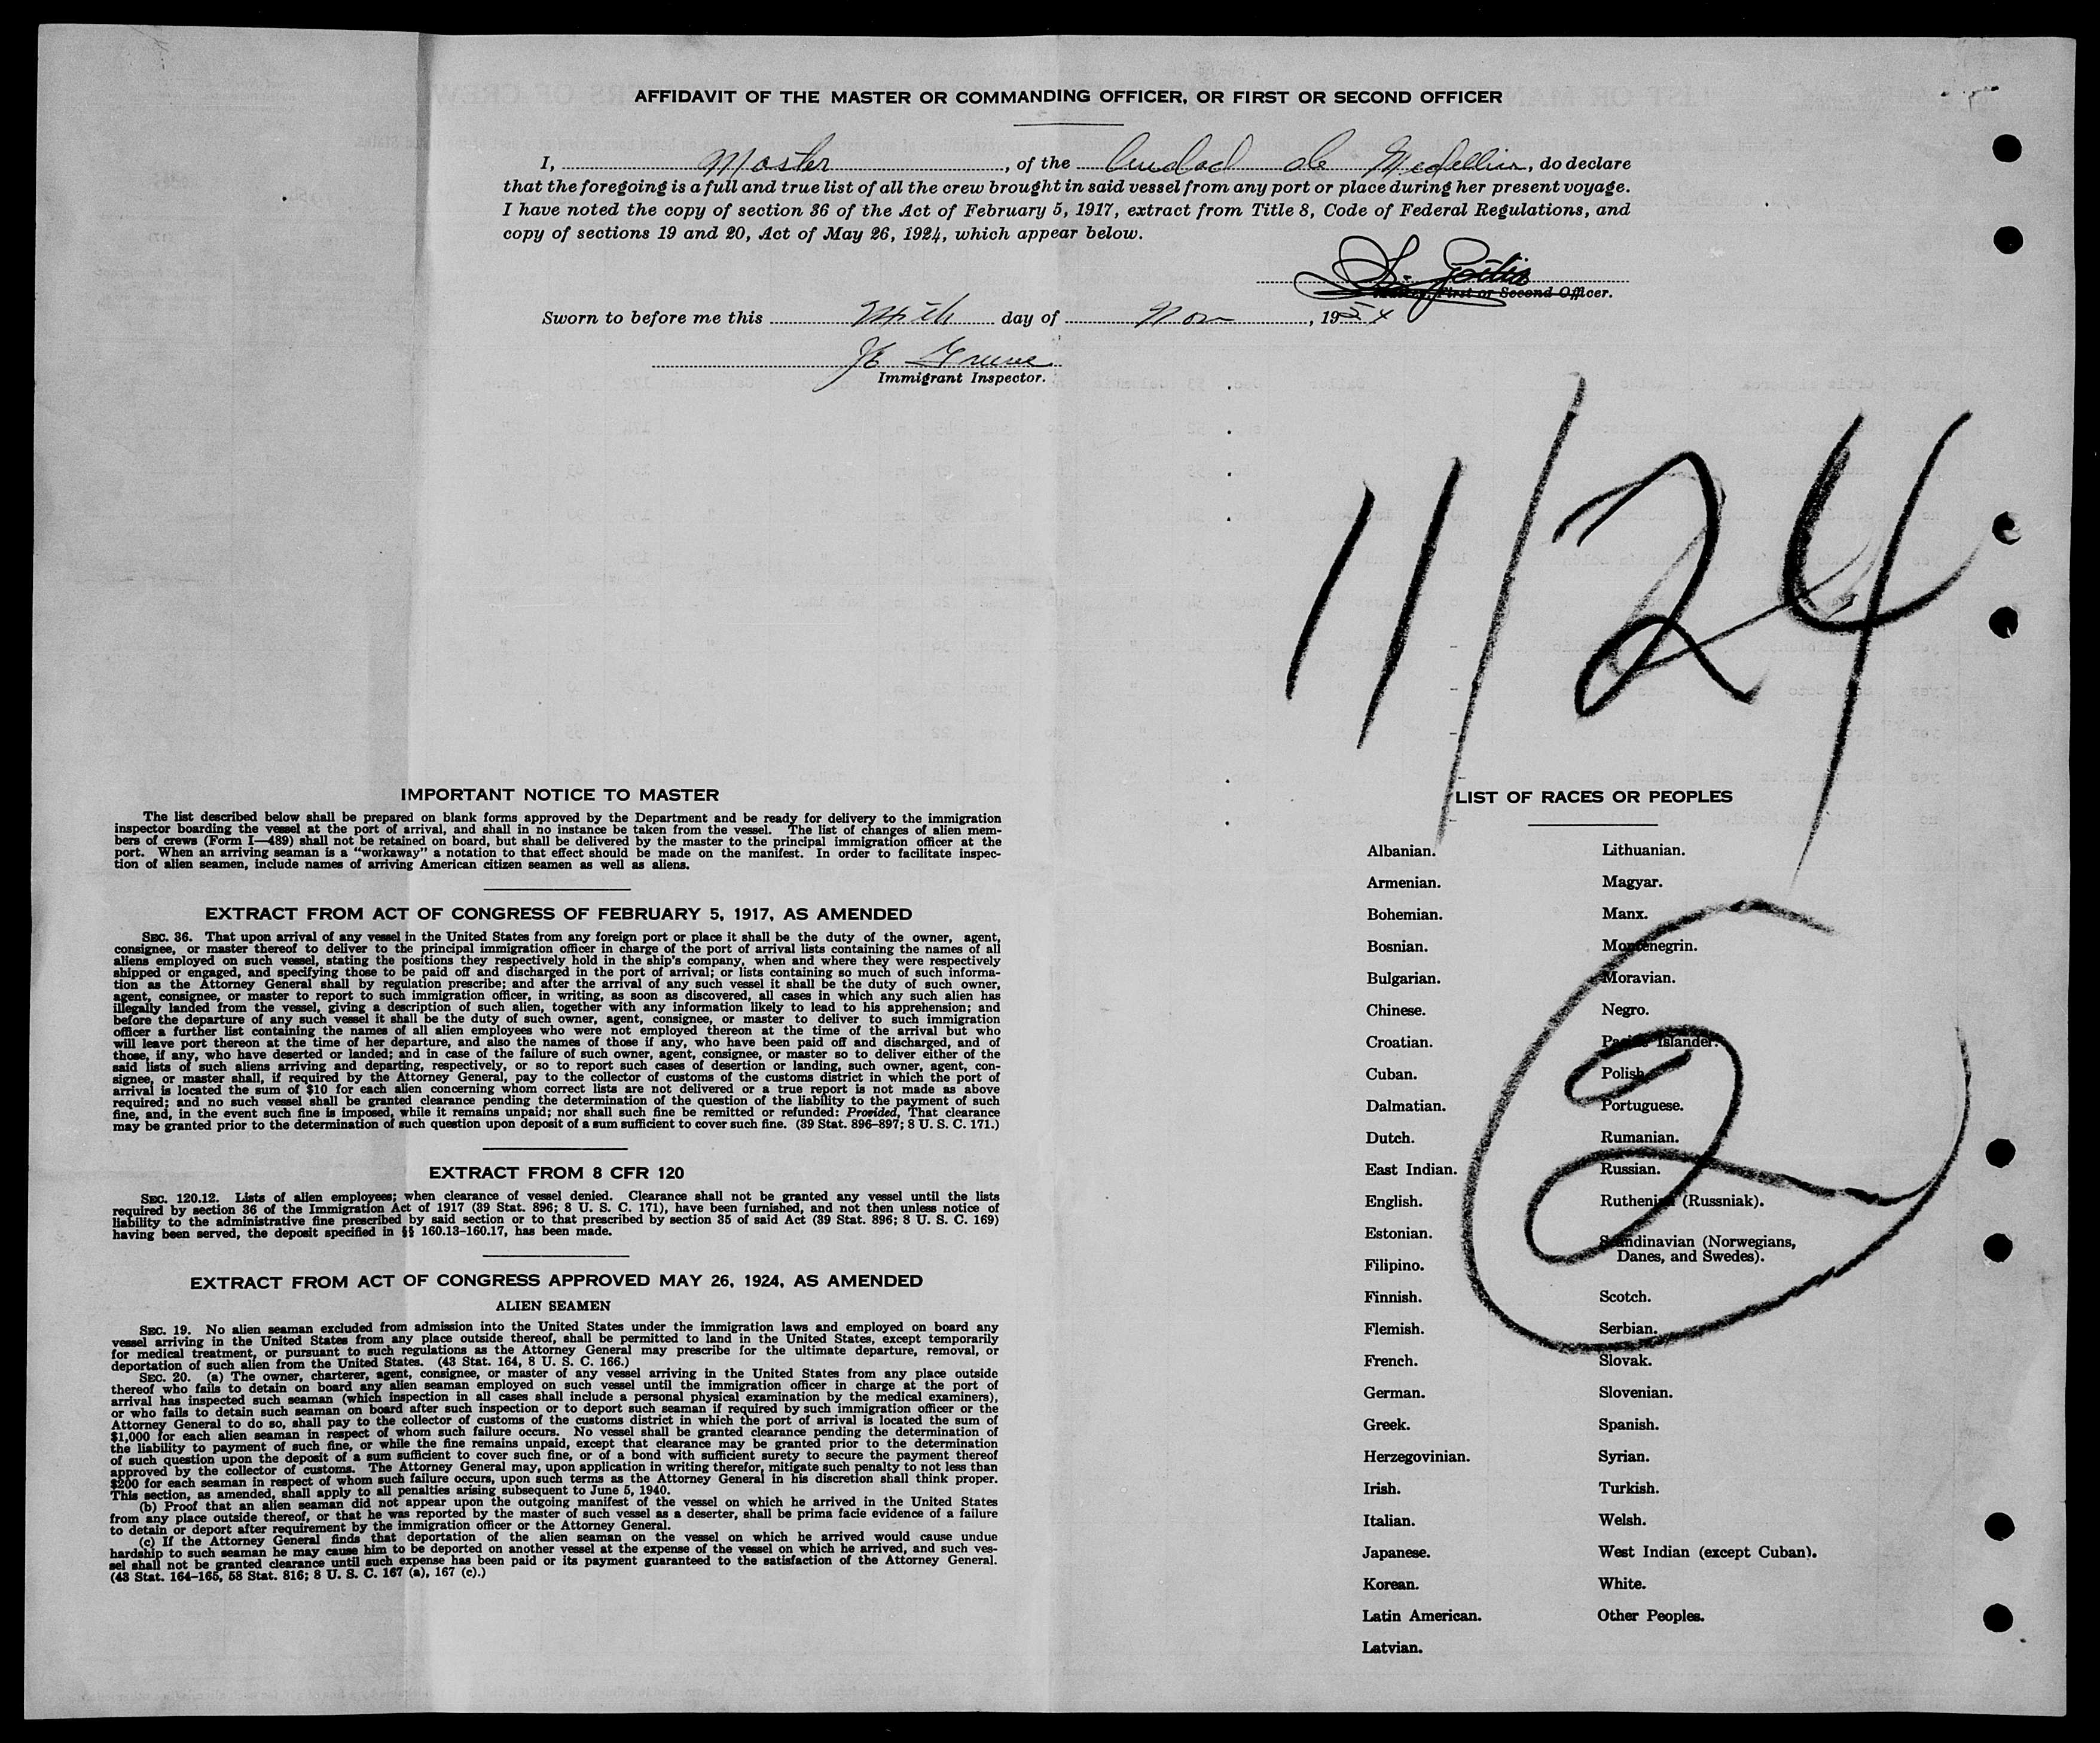 AFFIDAVIT OF THE MASTER OR COMMANDING OFFICER, OR FIRST OR SECOND OFFICER
I, Master, of the Ciudad de Medellin, do declare
that the foregoing is a full and true list of all the crew brought in said vessel from any port or place during her present voyage.
I have noted the copy of section 36 of the Act of February 5, 1917, extract from Title 8, Code of Federal Regulations, and
copy of sections 19 and 20, Act of May 26, 1924, which appear below.
Master, First or Second Officer.
Sworn to before me this day of Nov, 1954
Immigrant Inspector.
11/24
2
IMPORTANT NOTICE TO MASTER
The list described below shall be prepared on blank forms approved by the Department and be ready for delivery to the immigration
inspector boarding the vessel at the port of arrival, and shall in no instance be taken from the vessel. The list of changes of alien mem-
bers of crews (Form I—489) shall not be retained on board, but shall be delivered by the master to the principal immigration officer at the
port. When an arriving seaman is a "workaway" a notation to that effect should be made on the manifest. In order to facilitate inspec-
tion of alien seamen, include names of arriving American citizen seamen as well as aliens.
EXTRACT FROM ACT OF CONGRESS OF FEBRUARY 5, 1917, AS AMENDED
SEC. 36. That upon arrival of any vessel in the United States from any foreign port or place it shall be the duty of the owner, agent,
consignee, or master thereof to deliver to the principal immigration officer in charge of the port of arrival lists containing the names of all
aliens employed on such vessel, stating the positions they respectively hold in the ship's company, when and where they were respectively
shipped or engaged, and specifying those to be paid off and discharged in the port of arrival; or lists containing so much of such informa-
tion as the Attorney General shall by regulation prescribe; and after the arrival of any such vessel it shall be the duty of such owner,
agent, consignee, or master to report to such immigration officer, in writing, as soon as discovered, all cases in which any such alien has
illegally landed from the vessel, giving a description of such alien, together with any information likely to lead to his apprehension; and
before the departure of any such vessel it shall be the duty of such owner, agent, consignee, or master to deliver to such immigration
officer a further list containing the names of all alien employees who were not employed thereon at the time of the arrival but who
will leave port thereon at the time of her departure, and also the names of those if any, who have been paid off and discharged, and of
those, if any, who have deserted or landed; and in case of the failure of such owner, agent, consignee, or master so to deliver either of the
said lists of such aliens arriving and departing, respectively, or so to report such cases of desertion or landing, such owner, agent, con-
signee, or master shall, if required by the Attorney General, pay to the collector of customs of the customs district in which the port of
arrival is located the sum of $10 for each alien concerning whom correct lists are not delivered or a true report is not made as above
required; and no such vessel shall be granted clearance pending the determination of the question of the liability to the payment of such
fine, and, in the event such fine is imposed, while it remains unpaid; nor shall such fine be remitted or refunded: Provided, That clearance
may be granted prior to the determination of such question upon deposit of a sum sufficient to cover such fine. (39 Stat. 896-897; 8 U. S. C. 171.)
EXTRACT FROM 8 CFR 120
SEC. 120.12. Lists of alien employees; when clearance of vessel denied. Clearance shall not be granted any vessel until the lists
required by section 36 of the Immigration Act of 1917 (39 Stat. 896; 8 U. S. C. 171), have been furnished, and not then unless notice of
liability to the administrative fine prescribed by said section or to that prescribed by section 35 of said Act (39 Stat. 896; 8 U. S. C. 169)
having been served, the deposit specified in §§ 160.13-160.17, has been made.
EXTRACT FROM ACT OF CONGRESS APPROVED MAY 26, 1924, AS AMENDED
ALIEN SEAMEN
SEC. 19. No alien seaman excluded from admission into the United States under the immigration laws and employed on board any
vessel arriving in the United States from any place outside thereof, shall be permitted to land in the United States, except temporarily
for medical treatment, or pursuant to such regulations as the Attorney General may prescribe for the ultimate departure, removal, or
deportation of such alien from the United States. (43 Stat. 164, 8 U. S. C. 166.)
SEC. 20. (a) The owner, charterer, agent, consignee, or master of any vessel arriving in the United States from any place outside
thereof who fails to detain on board any alien seaman employed on such vessel until the immigration officer in charge at the port of
arrival has inspected such seaman (which inspection in all cases shall include a personal physical examination by the medical examiners),
or who fails to detain such seaman on board after such inspection or to deport such seaman if required by such immigration officer or the
Attorney General to do so, shall pay to the collector of customs of the customs district in which the port of arrival is located the sum of
$1,000 for each alien seaman in respect of whom such failure occurs. No vessel shall be granted clearance pending the determination of
the liability to payment of such fine, or while the fine remains unpaid, except that clearance may be granted prior to the determination
of such question upon the deposit of a sum sufficient to cover such fine, or of a bond with sufficient surety to secure the payment thereof
approved by the collector of customs. The Attorney General may, upon application in writing therefor, mitigate such penalty to not less than
$200 for each seaman in respect of whom such failure occurs, upon such terms as the Attorney General in his discretion shall think proper.
This section, as amended, shall apply to all penalties arising subsequent to June 5, 1940.
(b) Proof that an alien seaman did not appear upon the outgoing manifest of the vessel on which he arrived in the United States
from any place outside thereof, or that he was reported by the master of such vessel as a deserter, shall be prima facie evidence of a failure
to detain or deport after requirement by the immigration officer or the Attorney General.
(c) If the Attorney General finds that deportation of the alien seaman on the vessel on which he arrived would cause undue
hardship to such seaman he may cause him to be deported on another vessel at the expense of the vessel on which he arrived, and such ves-
sel shall not be granted clearance until such expense has been paid or its payment guaranteed to the satisfaction of the Attorney General.
(43 Stat. 164-165, 58 Stat. 816; 8 U. S. C. 167 (a), 167 (c).)
LIST OF RACES OR PEOPLES
Albanian.
Armenian.
Bohemian.
Bosnian.
Bulgarian.
Chinese.
Croatian.
Cuban.
Dalmatian.
Dutch.
East Indian.
English.
Estonian.
Filipino.
Finnish.
Flemish.
French.
German.
Greek.
Herzegovinian.
Irish.
Italian.
Japanese.
Korean.
Latin American.
Latvian.
Lithuanian.
Magyar.
Manx.
Montenegrin.
Moravian.
Negro.
Pacific Islander.
Polish.
Portuguese.
Rumanian.
Russian.
Ruthenian (Russniak).
Scandinavian (Norwegians,
Danes, and Swedes).
Scotch.
Serbian.
Slovak.
Slovenian.
Spanish.
Syrian.
Turkish.
Welsh.
West Indian (except Cuban).
White.
Other Peoples.